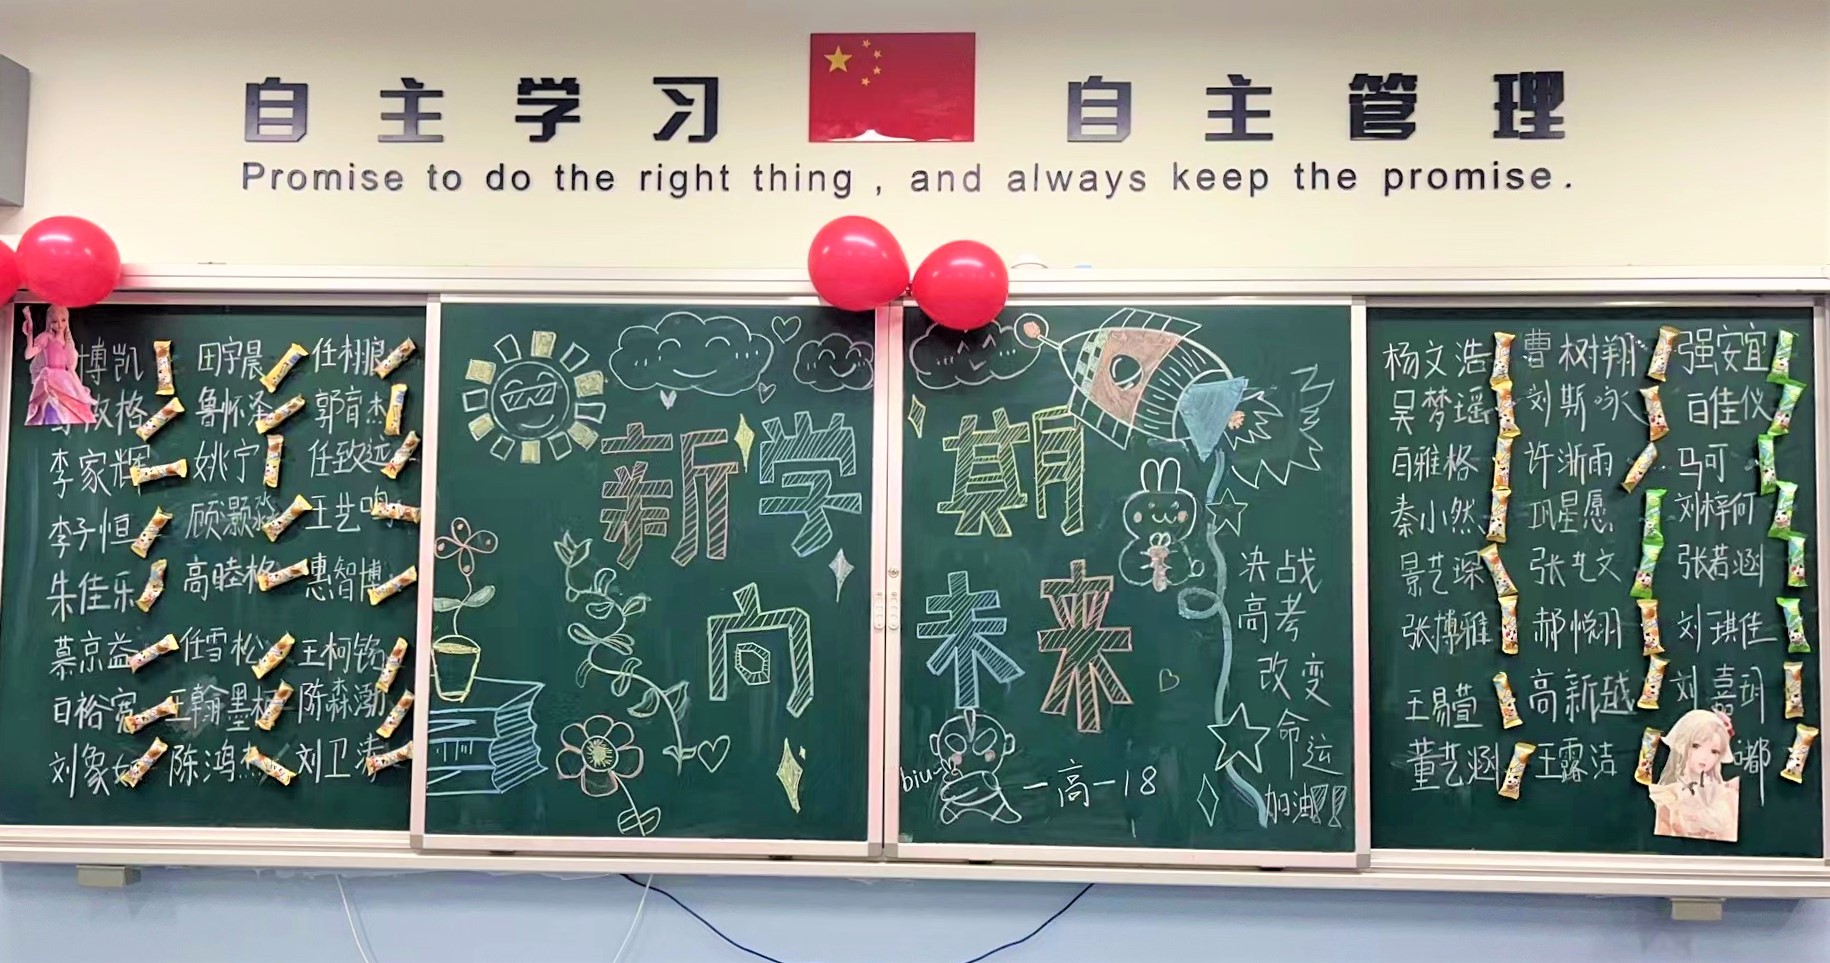 自主学习 自主管理
Promise to do the right thing, and always keep the promise.
博凯 田宇晨 任栩
格 鲁怀泽 郭育杰
李家辉 姚宁 任致远
李子恒 顾灏淼 王艺鸣
朱佳乐 高睦格 惠智博
慕京益 任雪松 王柯铭
白裕宽 王翰墨 陈森瀚
刘象 陈鸿 刘卫涛
新学
向
期
未来
决战
高考
改变
命运
加油!!!
biu~
一高一18
杨文浩 曹树翔 强安宜
吴梦瑶 刘斯咏 白佳仪
白雅格 许淅雨 马可
秦小然 巩星愿 刘梓何
景艺琛 张艺文 张若涵
张博雅 郝悦羽 刘琪佳
王易萱 高新越 刘嘉玥
董艺涵 王露洁 嘟